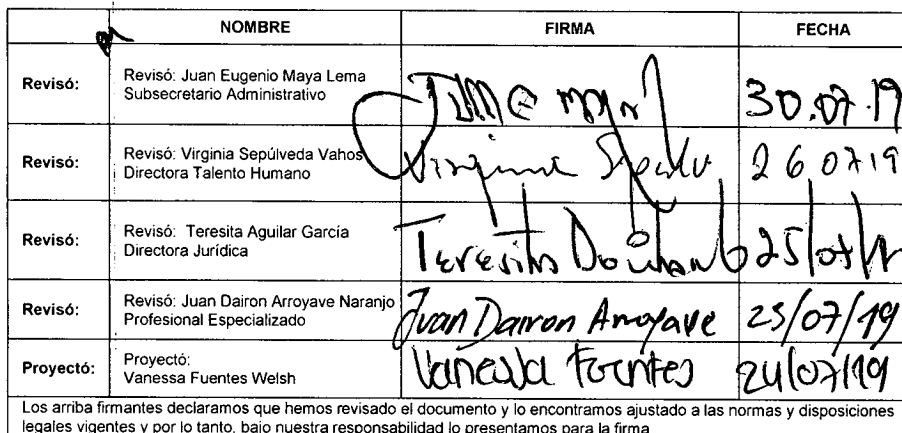 NOMBRE FIRMA FECHA
Revisó: Revisó: Juan Eugenio Maya Lema
Subsecretario Administrativo
30.07.19
Revisó: Revisó: Virginia Sepúlveda Vahos
Directora Talento Humano
Virginia 26 07 19
Revisó: Revisó: Teresita Aguilar García
Directora Jurídica
Teresita 25/07/19
Revisó: Revisó: Juan Dairon Arroyave Naranjo
Profesional Especializado
Juan Dairon Arroyave 25/07/19
Proyectó: Proyectó:
Vanessa Fuentes Welsh
Vanessa Fuentes 24/07/19
Los arriba firmantes declaramos que hemos revisado el documento y lo encontramos ajustado a las normas y disposiciones
legales vigentes y por lo tanto, bajo nuestra responsabilidad lo presentamos para la firma